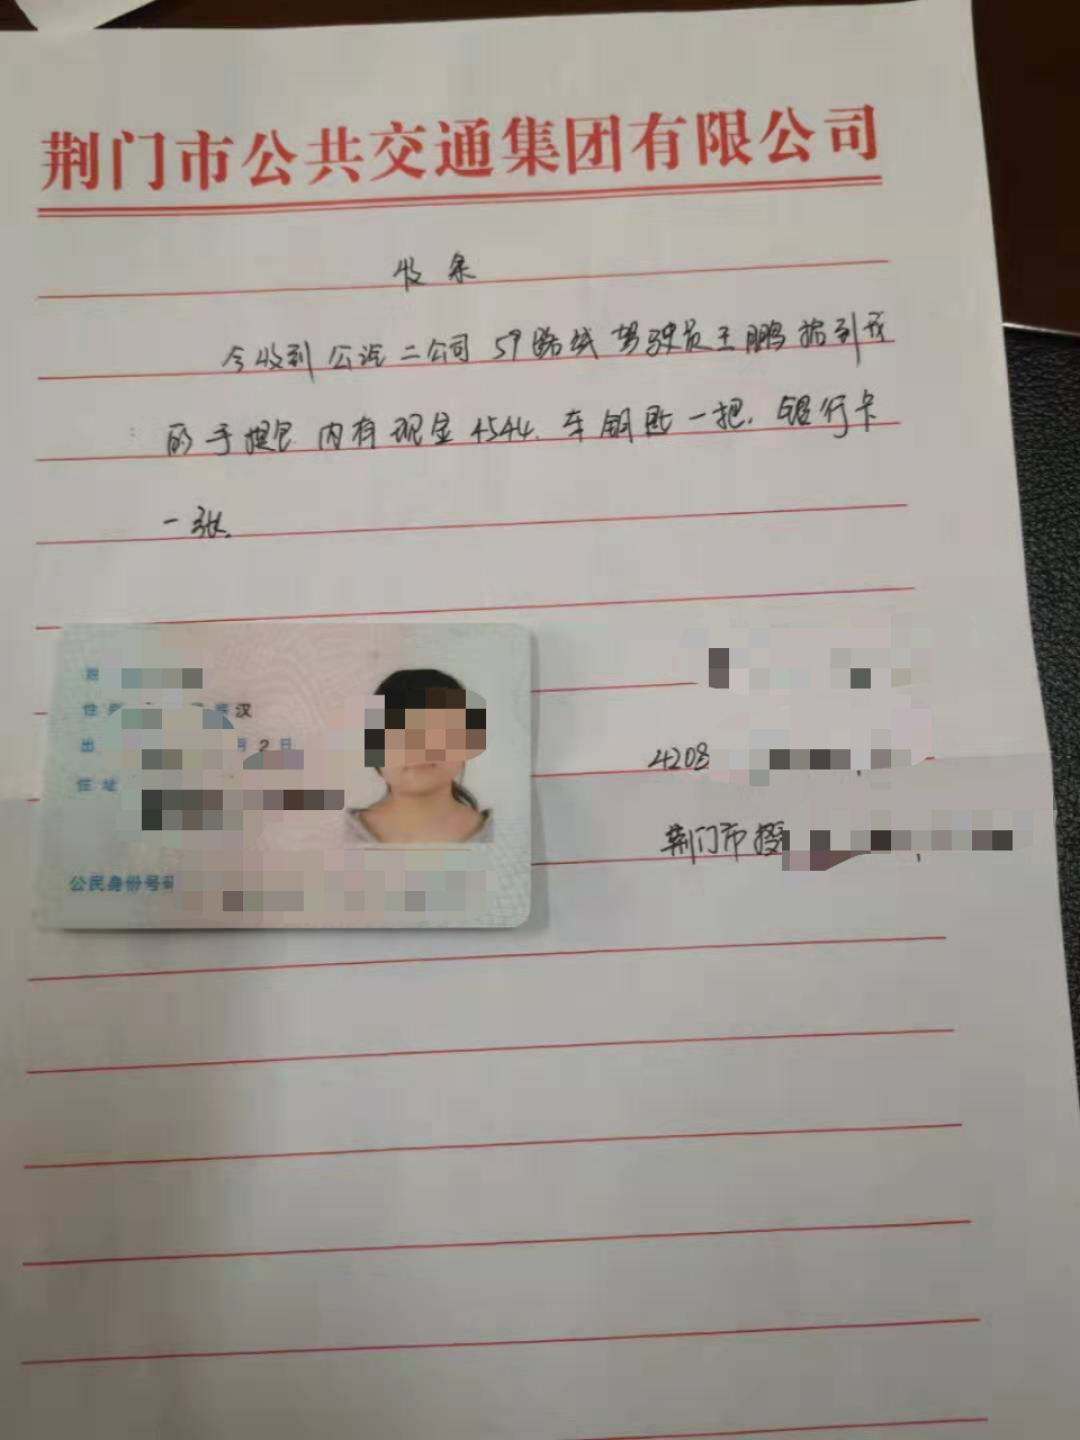 荆门市公共交通集团有限公司
收条
今收到公汽二公司59路线驾驶员王鹏拾到我
的手提包内有现金4544.车钥匙一把.银行卡
一张.
汉
出 月2日
住址
公民身份号码
4208
荆门市掇